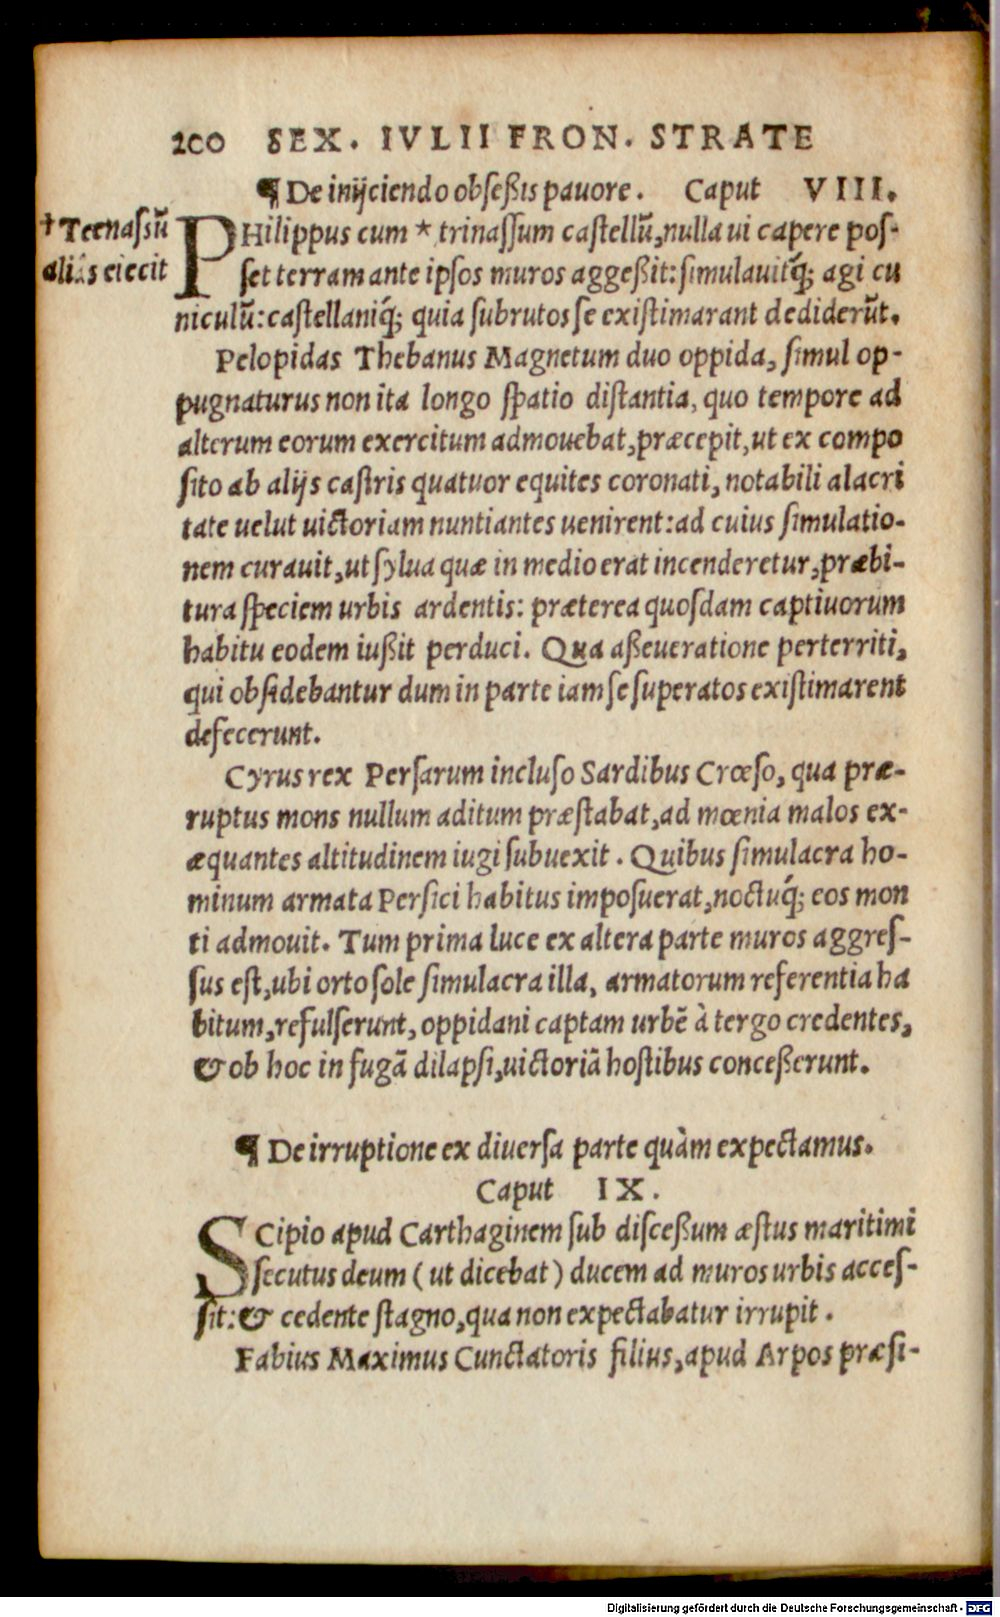 200 SEX. IVLII FRON. STRATE
¶ De inijciendo obseßis pauore. Caput VIII.
†Teenassū
aliàs eiecit
PHilippus cum * trinassum castellū, nulla ui capere pos-
set terram ante ipsos muros aggeßit: simulauitq́; agi cu
niculū: castellaniq́; quia subrutos se existimarant dediderūt.
Pelopidas Thebanus Magnetum duo oppida, simul op-
pugnaturus non ita longo spatio distantia, quo tempore ad
alterum eorum exercitum admouebat, præcepit, ut ex compo
sito ab alijs castris quatuor equites coronati, notabili alacri
tate uelut uictoriam nuntiantes uenirent: ad cuius simulatio-
nem curauit, ut sylua quæ in medio erat incenderetur, præbi-
tura speciem urbis ardentis: præterea quosdam captiuorum
habitu eodem iußit perduci. Qua aßeueratione perterriti,
qui obsidebantur dum in parte iam se superatos existimarent
defecerunt.
Cyrus rex Persarum incluso Sardibus Crœso, qua præ-
ruptus mons nullum aditum præstabat, ad mœnia malos ex-
æquantes altitudinem iugi subuexit. Quibus simulacra ho-
minum armata Persici habitus imposuerat, noctuq́; eos mon
ti admouit. Tum prima luce ex altera parte muros aggres-
sus est, ubi orto sole simulacra illa, armatorum referentia ha
bitum, refulserunt, oppidani captam urbē à tergo credentes,
& ob hoc in fugā dilapsi, uictoriā hostibus conceßerunt.
¶ De irruptione ex diuersa parte quàm expectamus.
Caput IX.
SCipio apud Carthaginem sub disceßum æstus maritimi
secutus deum (ut dicebat) ducem ad muros urbis acces-
sit: & cedente stagno, qua non expectabatur irrupit.
Fabius Maximus Cunctatoris filius, apud Arpos præsi-
Digitalisierung gefördert durch die Deutsche Forschungsgemeinschaft - DFG